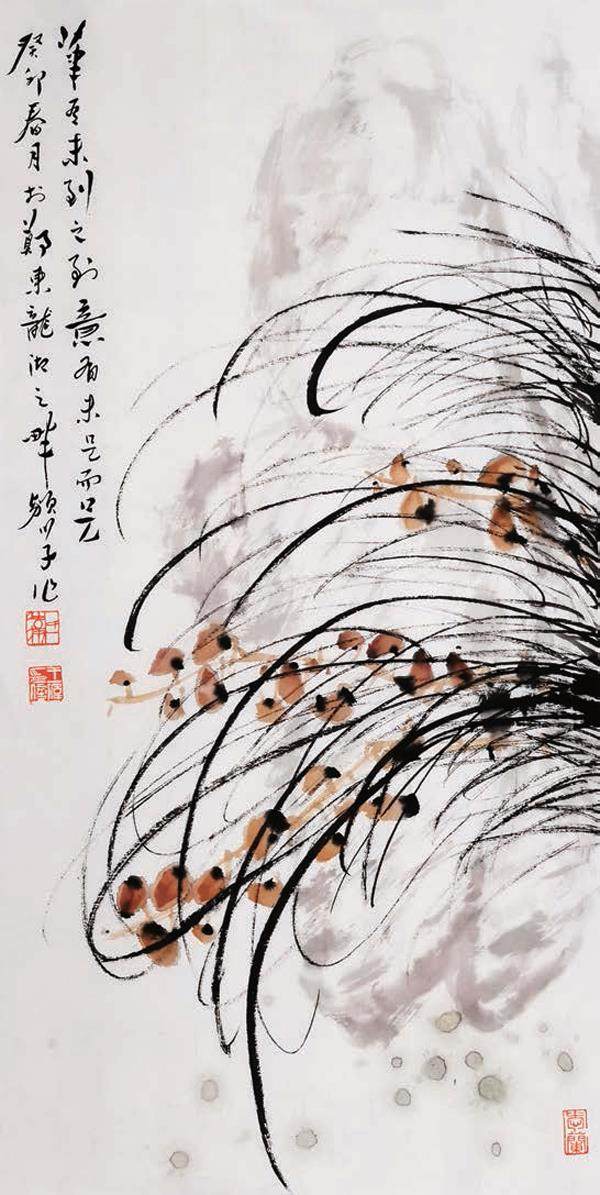 筆有未到之到意有未足而足
癸卯春月於鄭東龍湖之畔子作